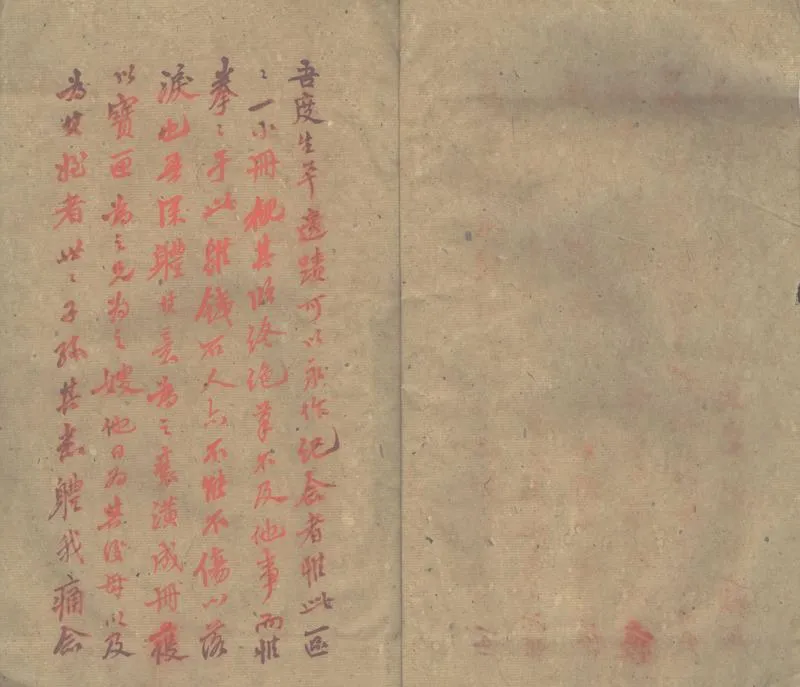 吾度生平遺蹟可以永作紀念者惟此區
〻一小冊觀其臨終絕筆不及他事而惟
拳〻于此雖鐵石人亦不能不傷心落
淚也吾深體其意為之裝潢成冊襲
以寶匣為之兄為之嫂他日為其後母以及
為其姪者世〻子孫其當體我痛念